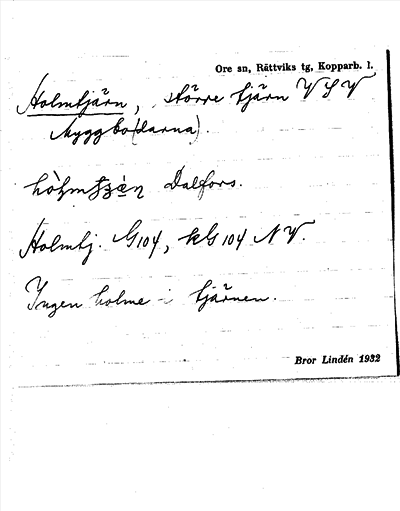 Ore sn, Rättviks tg, Kopparb. l.
Holmtjärn, större tjärn VSV
Myggbo(darna).
Dalfors.
Holmtj. G104, kG 104 NV.
Ingen holme i tjärnen.
Bror Lindén 1932